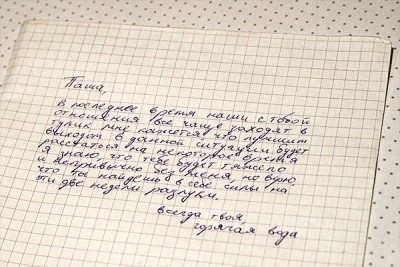 Паша,
В последнее время наши с тобой
отношения все чаще заходят в
тупик. мне кажется что лучшим
выходом в данной ситуации будет
расстаться на некоторое время
я знаю, что тебе будет тяжело
и непривычно без меня, но верю,
что ты найдешь в себе силы на
эти две недели разлуки.
всегда твоя,
горячая вода